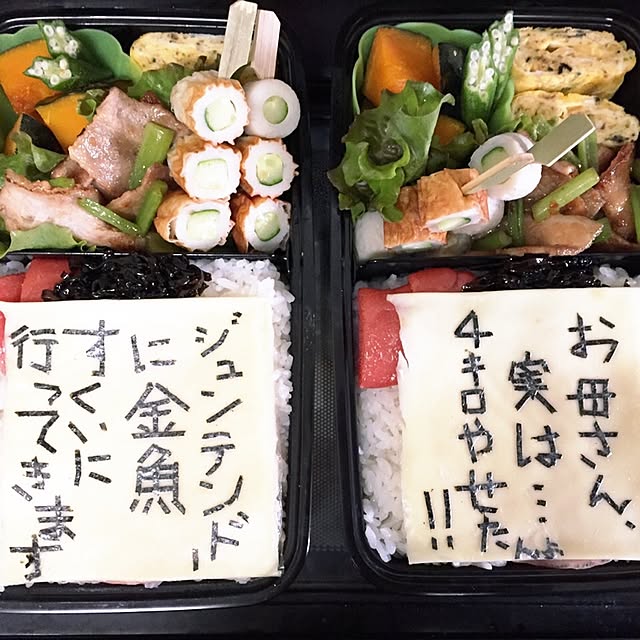 ジュンテンドー
に金魚
すくいに
行ってきます
お母さん、
実は…
4キロやせたんよ!!